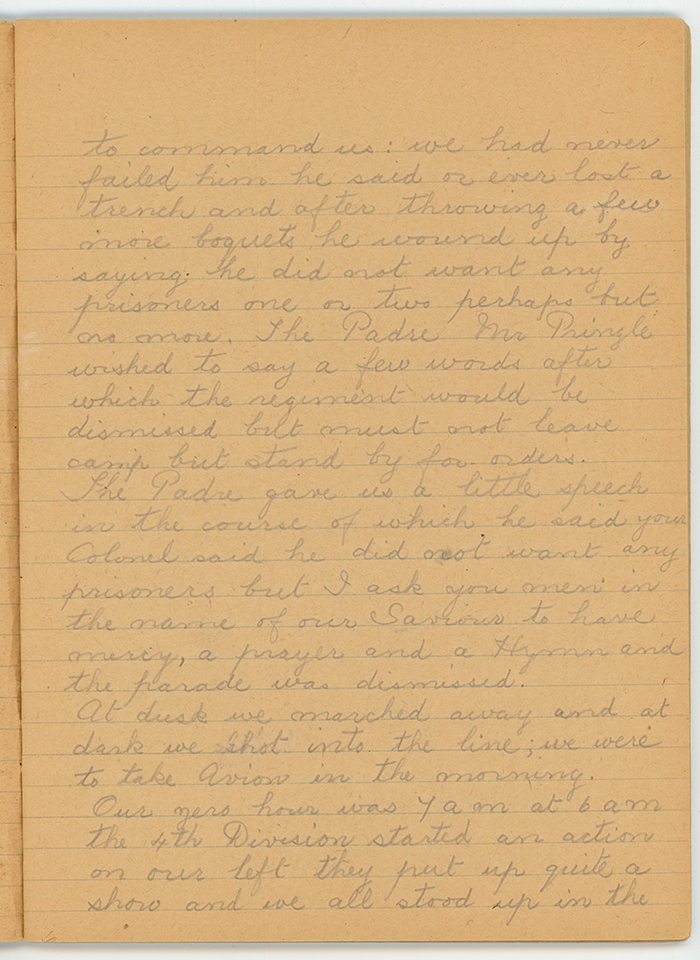 to command us: we had never
failed him he said or ever lost a
trench and after throwing a few
more boquets he wound up by
saying he did not want any
prisoners one or two perhaps but
no more. The Padre Mr Pringle
wished to say a few words after
which the regiment would be
dismissed but must not leave
camp but stand by for orders.
The Padre gave us a little speech
in the course of which he said your
Colonel said he did not want any
prisoners but I ask you men in
the name of our Saviour to have
mercy, a prayer and a Hymn and
the parade was dismissed.
At dusk we marched away and at
dark we shot into the line; we were
to take Avion in the morning.
Our zero hour was 7 a m at 6 a m
the 4th Division started an action
on our left they put up quite a
show and we all stood up in the